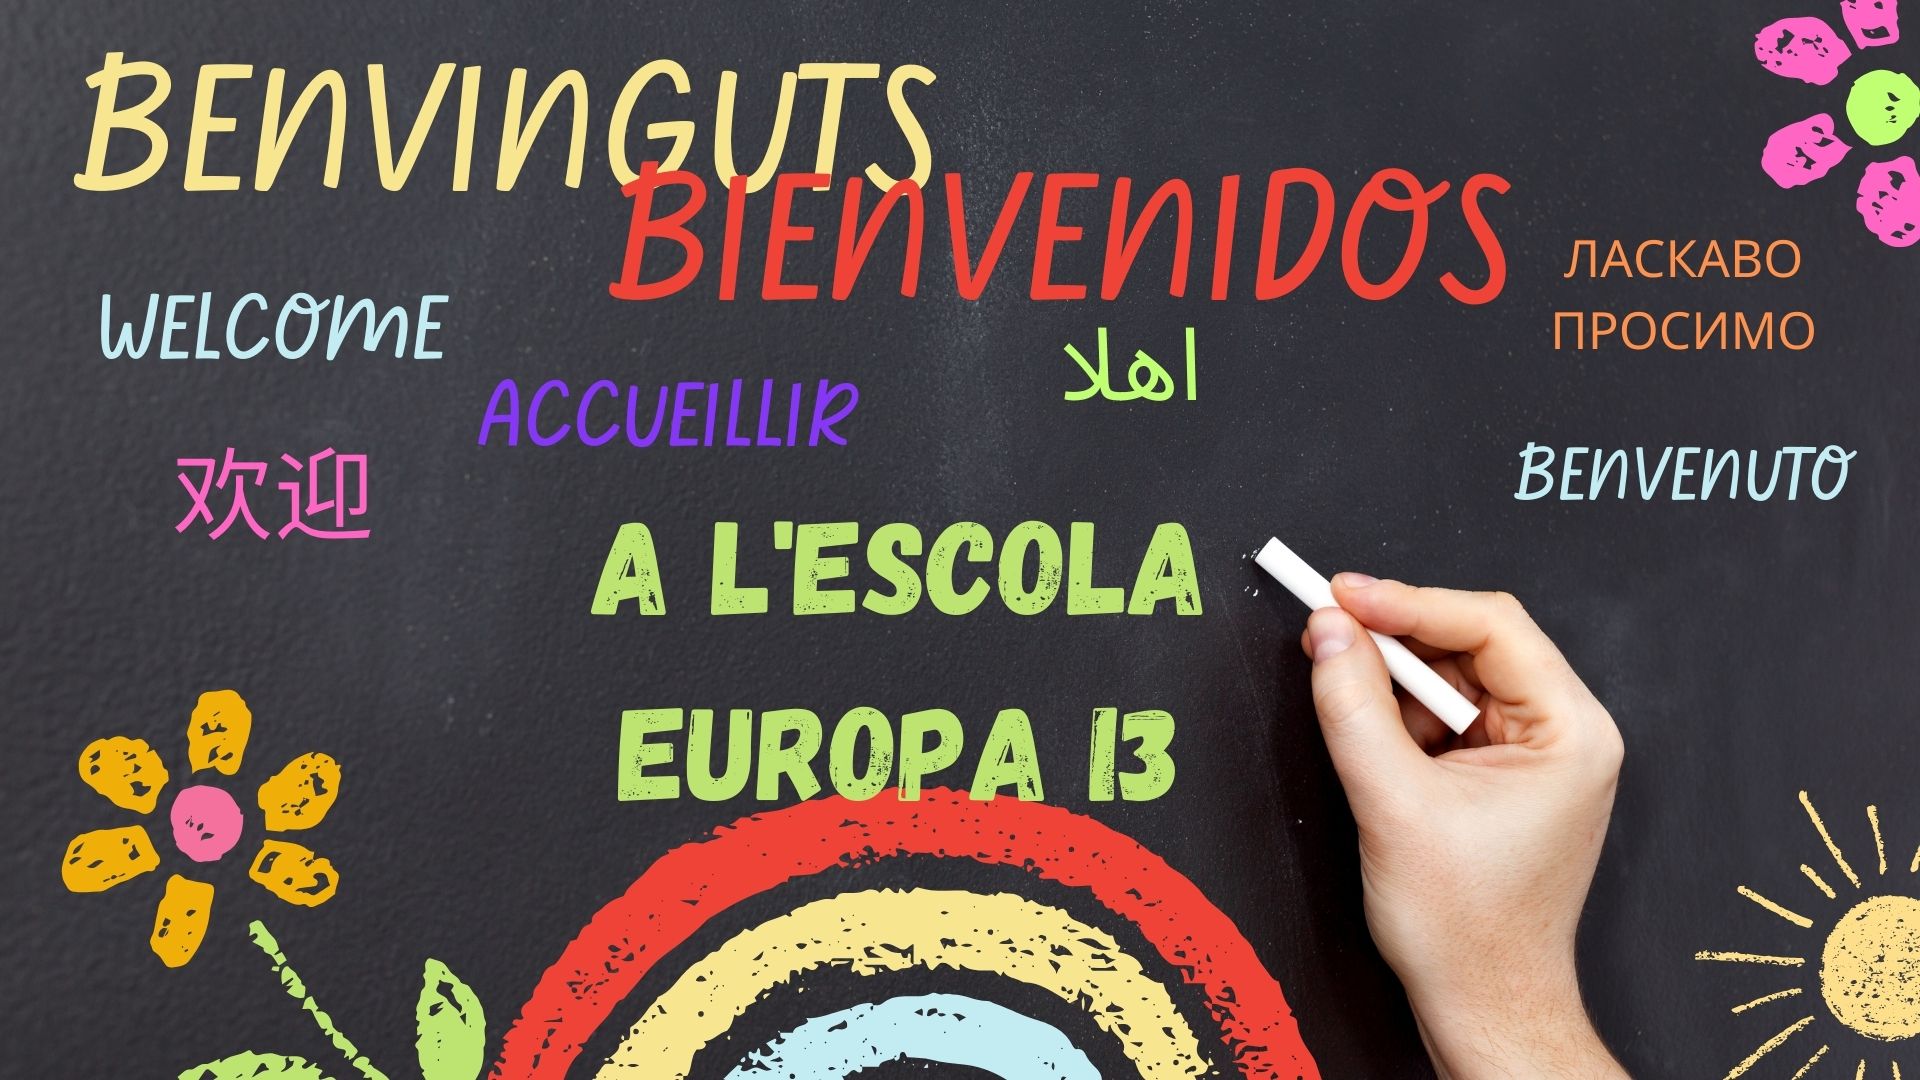 BENVINGUTS
BIENVENIDOS
ЛАСКАВО
ПРОСИМО
WELCOME
اهلا
ACCUEILLIR
欢迎
BENVENUTO
A L'ESCOLA
EUROPA 13